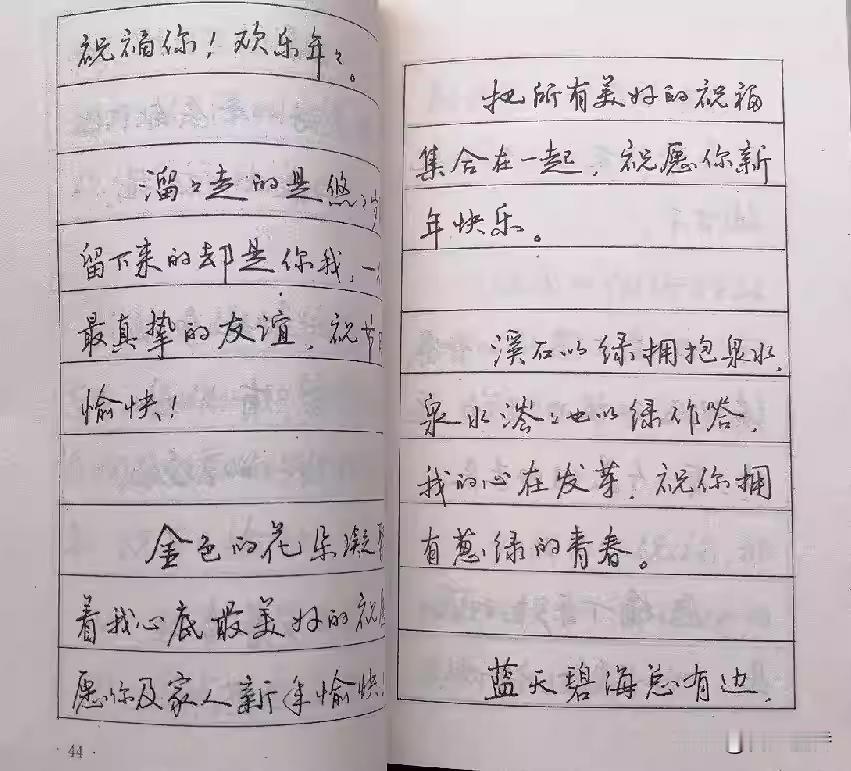 祝福你！欢乐年々。
溜々走的是悠々
留下来的却是你我，一
最真挚的友谊，祝节
愉快！
金色的花朵凝
着我心底最美好的祝
愿你及家人新年愉快！
44
把所有美好的祝福
集合在一起，祝愿你新
年快乐。
溪石以绿拥抱泉水，
泉水潺々也以绿作答，
我的心在发芽，祝你拥
有葱绿的青春。
蓝天碧海总有边，